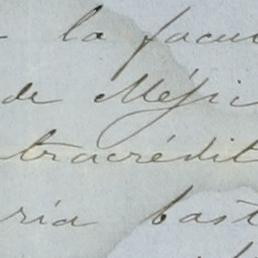 la facul
de Méjic
tracrédit
ria bast